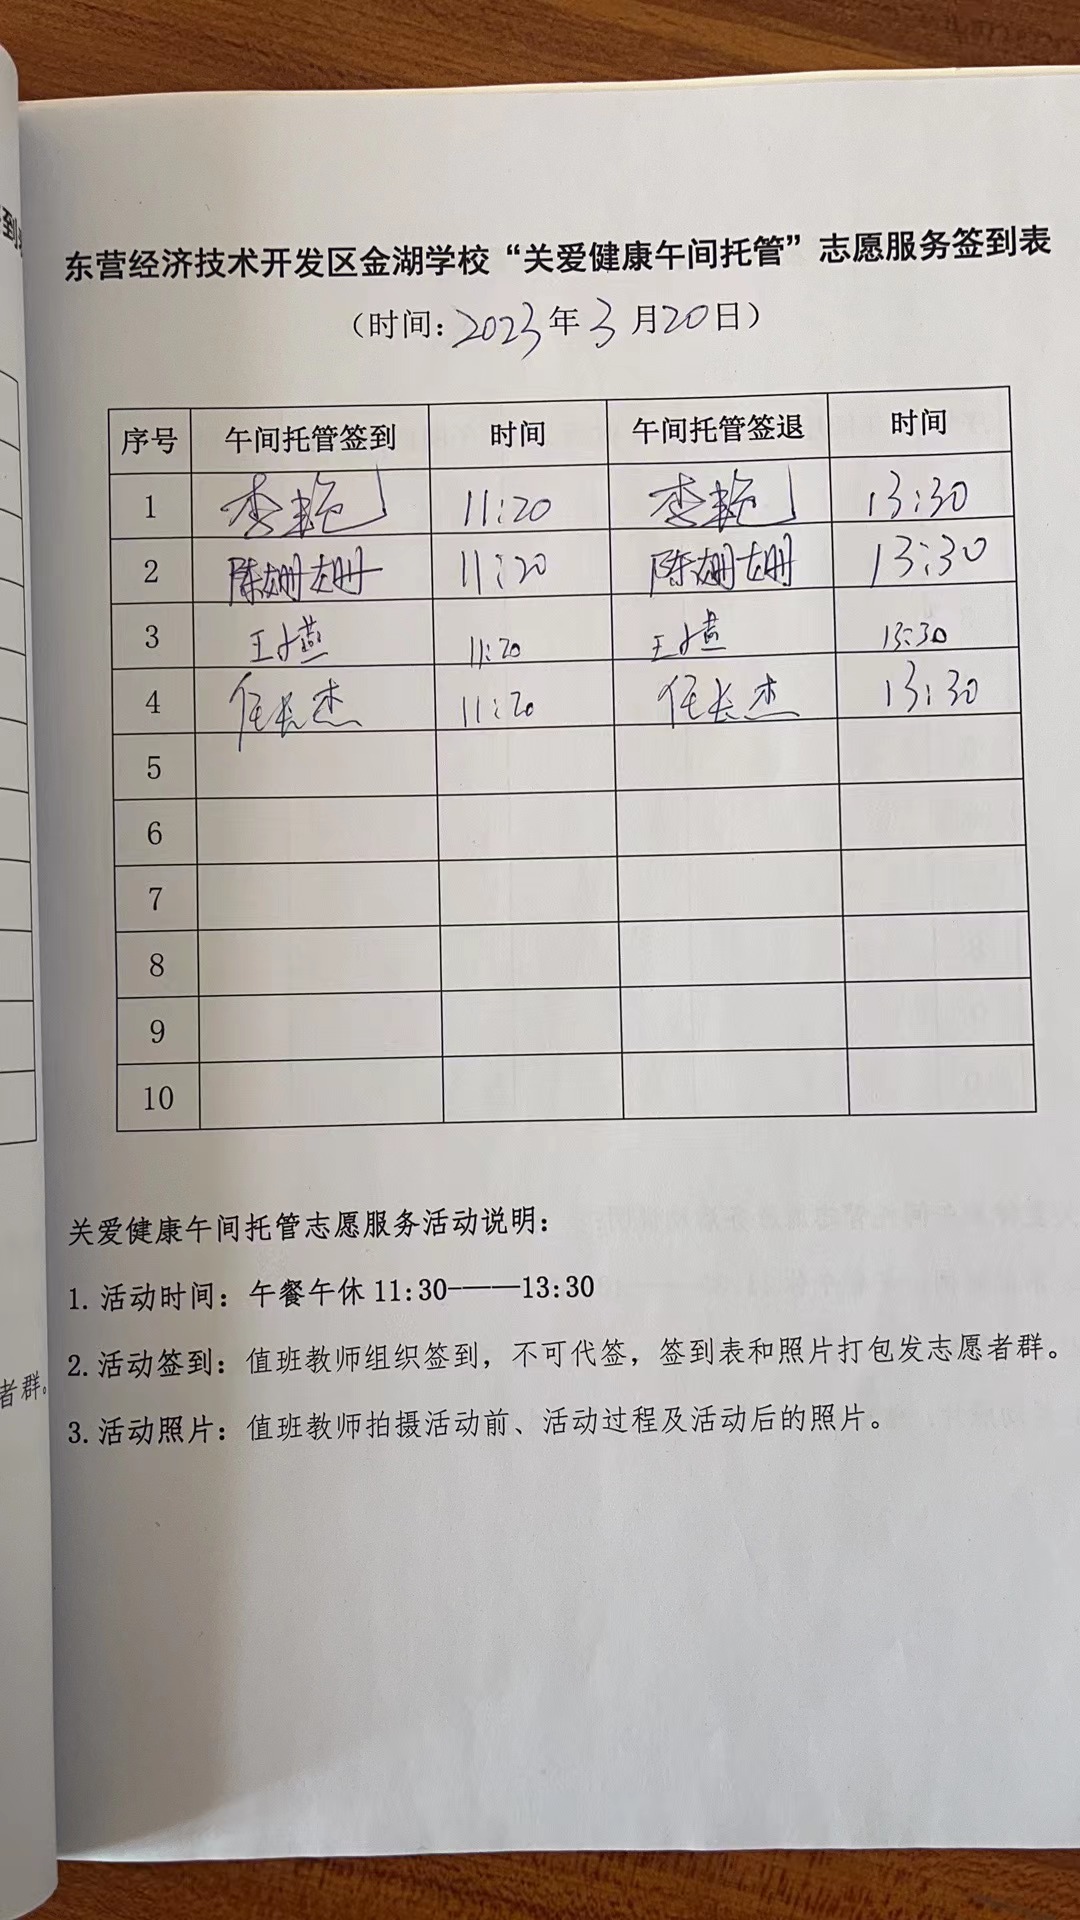 东营经济技术开发区金湖学校“关爱健康午间托管”志愿服务签到表
（时间：2023年3月20日）
序号 午间托管签到 时间 午间托管签退 时间
1 李艳 11:20 李艳 13:30
2 陈姗姗 11:20 陈姗姗 13:30
3 王小燕 11:20 王小燕 13:30
4 任长杰 11:20 任长杰 13:30
5
6
7
8
9
10
关爱健康午间托管志愿服务活动说明：
1.活动时间：午餐午休 11:30——13:30
2.活动签到：值班教师组织签到，不可代签，签到表和照片打包发志愿者群。
3.活动照片：值班教师拍摄活动前、活动过程及活动后的照片。
者群。